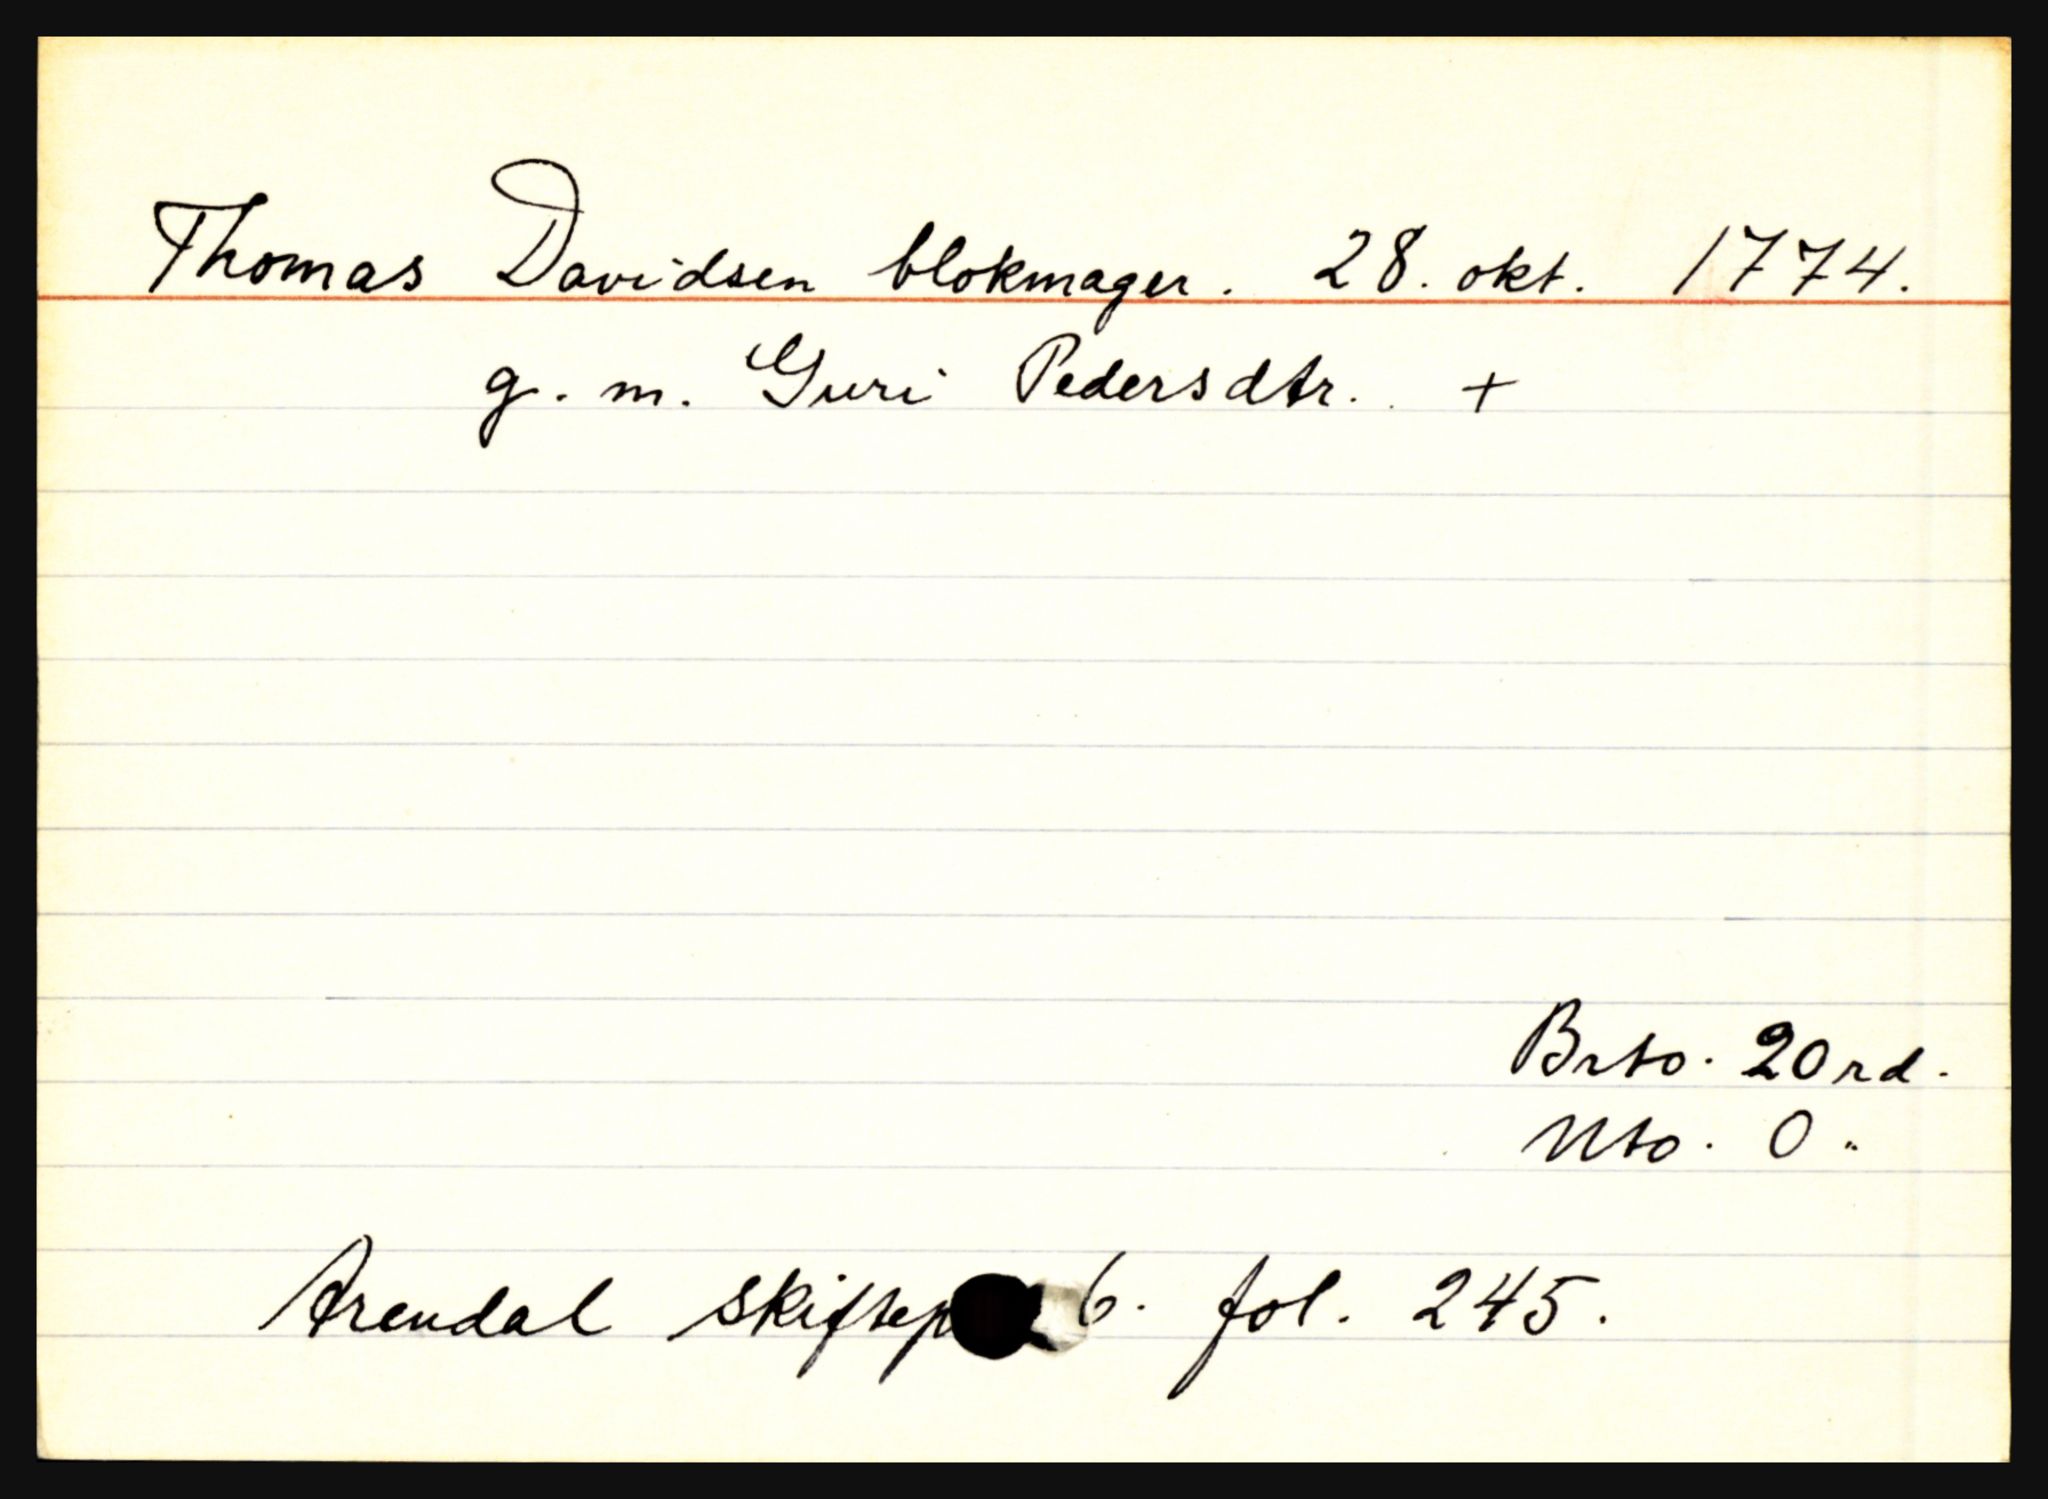 Thomas Davidsen blokmager. 28. okt. 1774.
g. m. Guri Pedersdtr. +
Brto. 20 rd.
Nto. 0 "
Arendal 6. fol. 245.